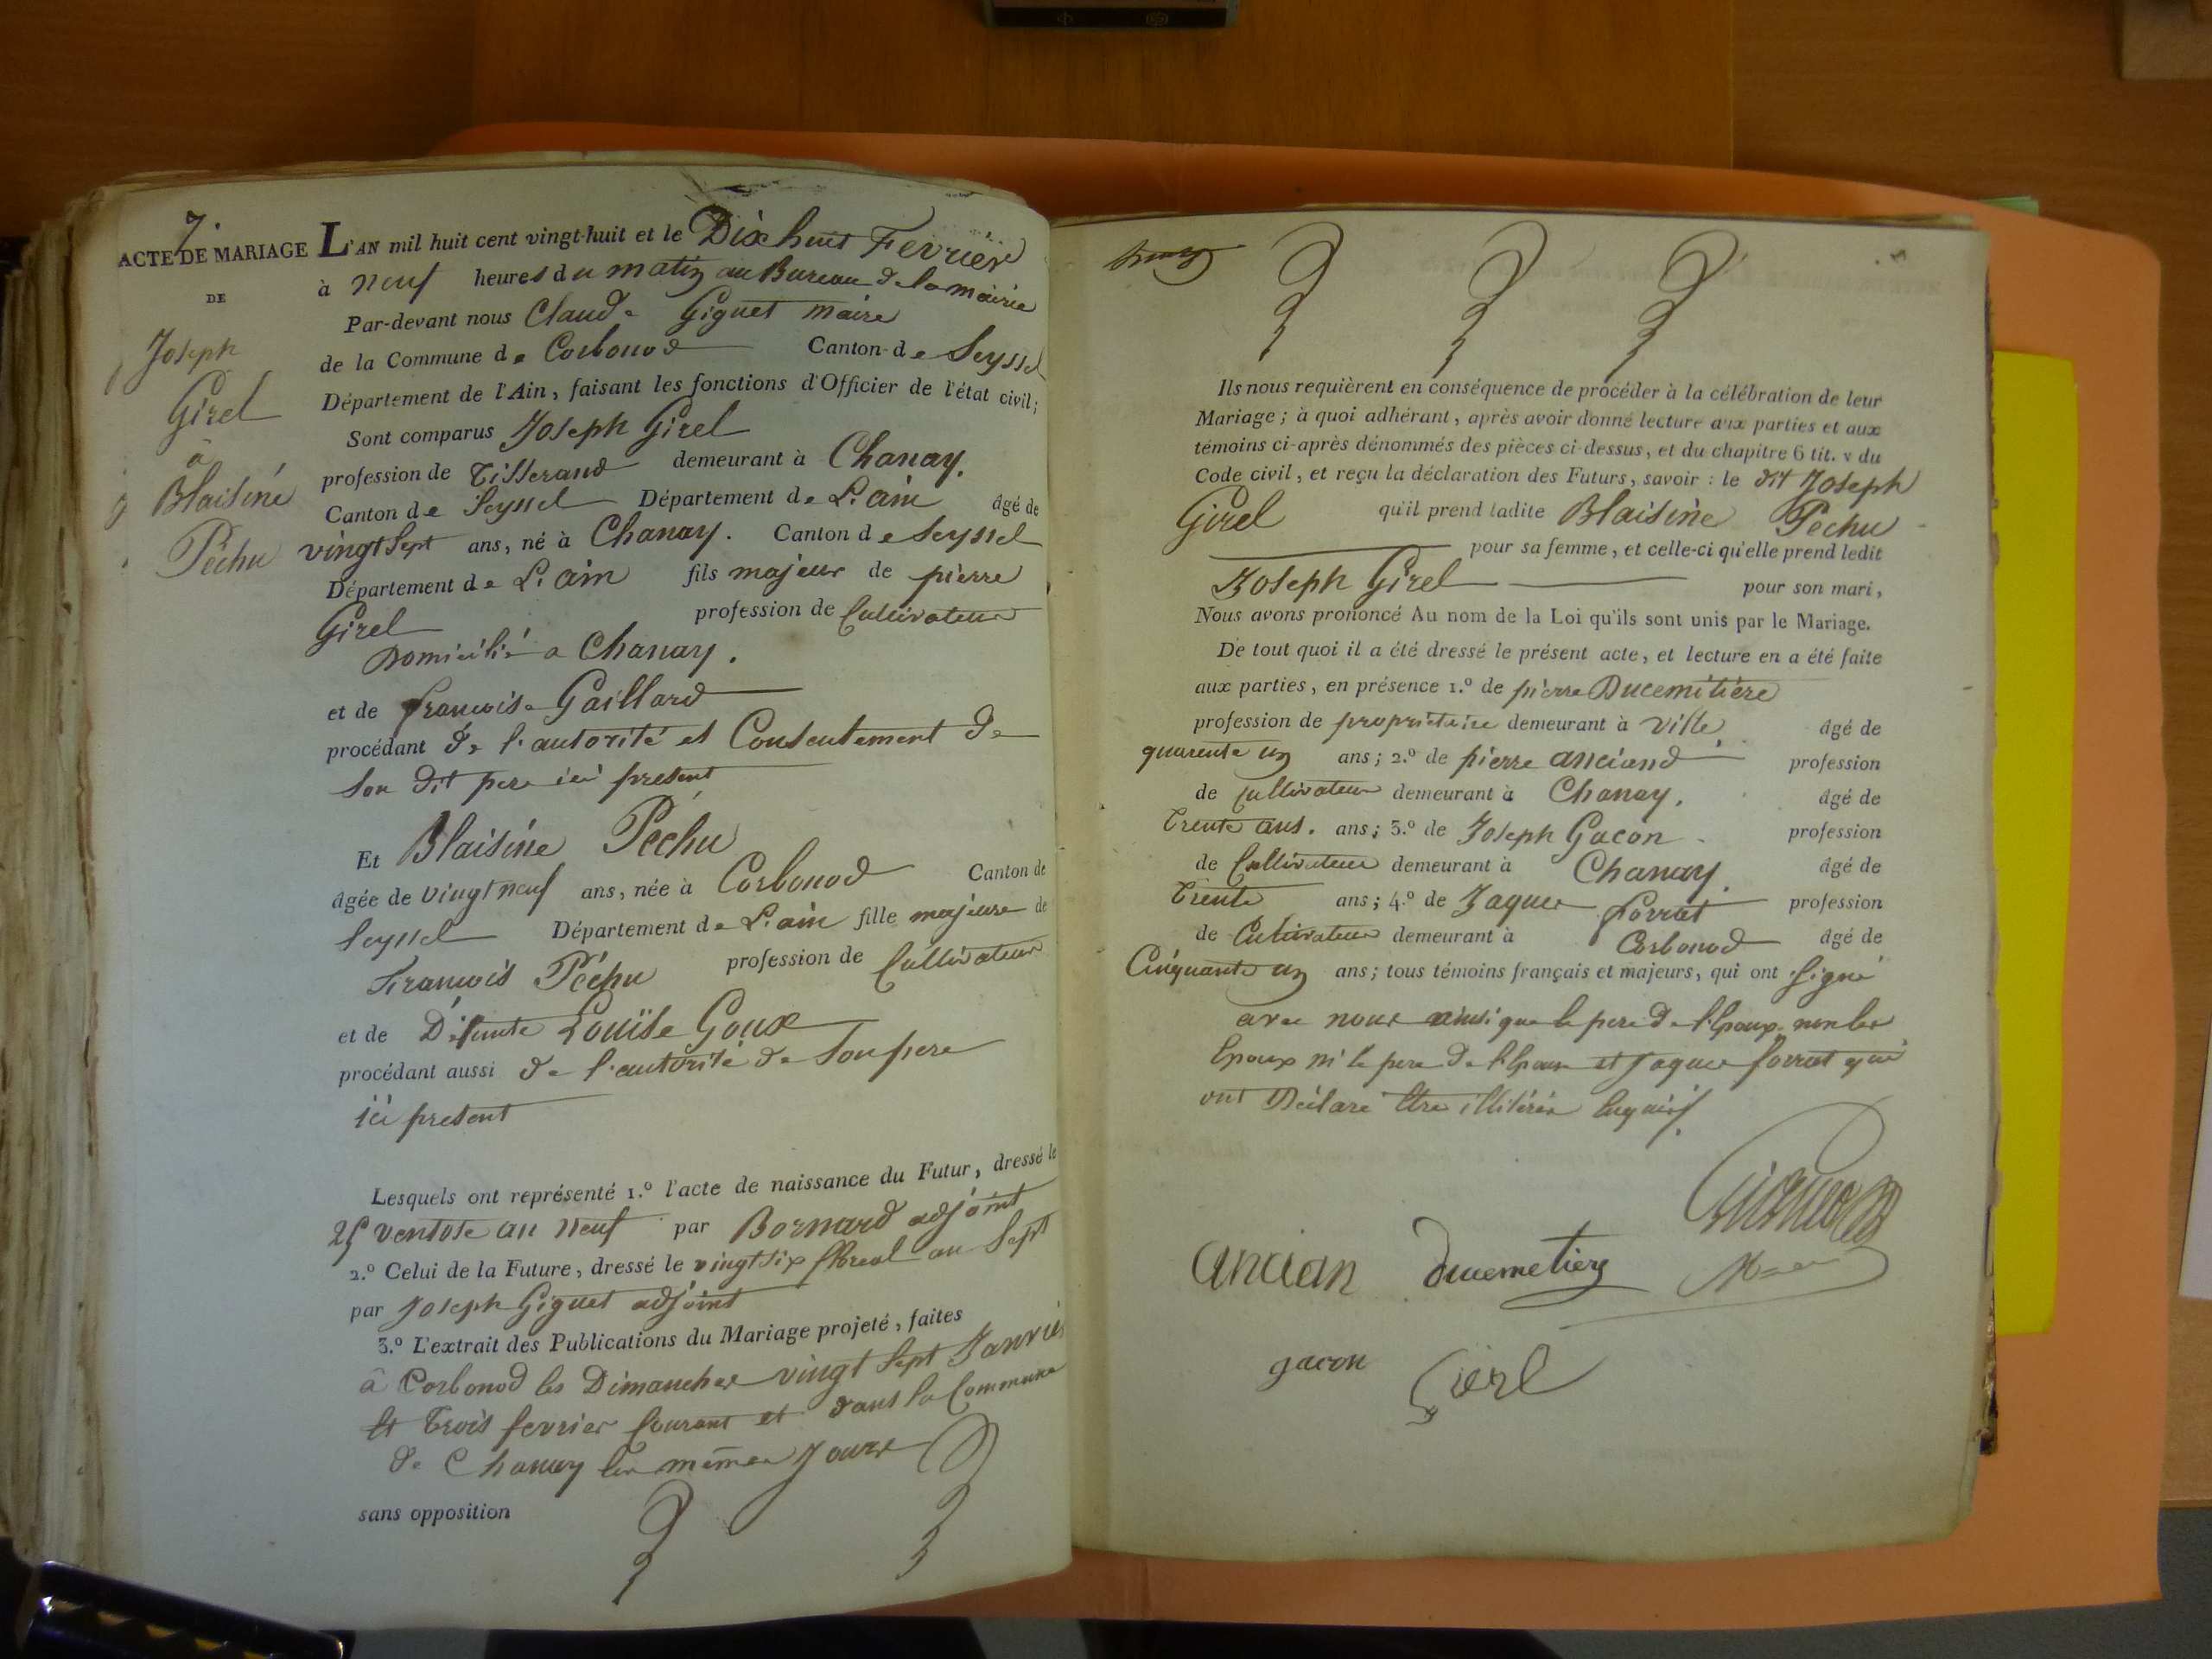 7.
ACTE DE MARIAGE
DE
Joseph
Girel
à
Blaisine
Péchu
L'AN mil huit cent vingt-huit et le Dix huit Fevrier
à neuf heures du matin au Bureau de la mairie
Par-devant nous Claude Giguet maire
de la Commune de Corbonod Canton de Seyssel
Département de l'Ain, faisant les fonctions d'Officier de l'état civil;
Sont comparus Joseph Girel
profession de Tisserand demeurant à Chanay.
Canton de Seyssel Département de L'ain âgé de
vingt Sept ans, né à Chanay. Canton de Seyssel
Département de L'ain fils majeur de pierre
Girel profession de Cultivateur
Domicilié a Chanay.
et de francoise Gaillard
procédant de l'autorité et Consentement de
Son dit pere ici present
Et Blaisine Péchu
âgée de vingt neuf ans, née à Corbonod Canton de
Seyssel Département de L'ain fille majeure de
Francois Péchu profession de Cultivateur
et de Défunte Louïse Goux
procédant aussi de l'autorité de Son pere
ici present
Lesquels ont représenté 1.º l'acte de naissance du Futur, dressé le
25 ventose an neuf par Bornard adjoint
2.º Celui de la Future, dressé le vingt six floreal an Sept
par Joseph Giguet adjoint
3.º L'extrait des Publications du Mariage projeté, faites
a Corbonod les Dimanches vingt Sept Janvier
et trois fevrier Courant et dans la Commune
de Chanay les mêmes Jours
sans opposition
Ils nous requièrent en conséquence de procéder à la célébration de leur
Mariage; à quoi adhérant, après avoir donné lecture aux parties et aux
témoins ci-après dénommés des pièces ci-dessus, et du chapitre 6 tit. v du
Code civil, et reçu la déclaration des Futurs, savoir: le dit Joseph
Girel qu'il prend ladite Blaisine Péchu
pour sa femme, et celle-ci qu'elle prend ledit
Joseph Girel pour son mari,
Nous avons prononcé Au nom de la Loi qu'ils sont unis par le Mariage.
De tout quoi il a été dressé le présent acte, et lecture en a été faite
aux parties, en présence 1.º de pierre Ducemètière
profession de propriétaire demeurant à ville âgé de
quarente un ans; 2.º de pierre anciand profession
de Cultivateur demeurant à Chanay. âgé de
trente ans. ans; 3.º de Joseph Gacon profession
de Cultivateur demeurant à Chanay. âgé de
trente ans; 4.º de Jaques forrat profession
de Cultivateur demeurant à Corbonod âgé de
Cinquante un ans; tous témoins français et majeurs, qui ont Signé
avec nous ainsi que le pere de l'Epoux non les
Epoux ni le pere de l'Epouse et Jaques forrat qui
ont Déclaré être illitérés Enquis.
ancian Ducemetiere
gacon Girel